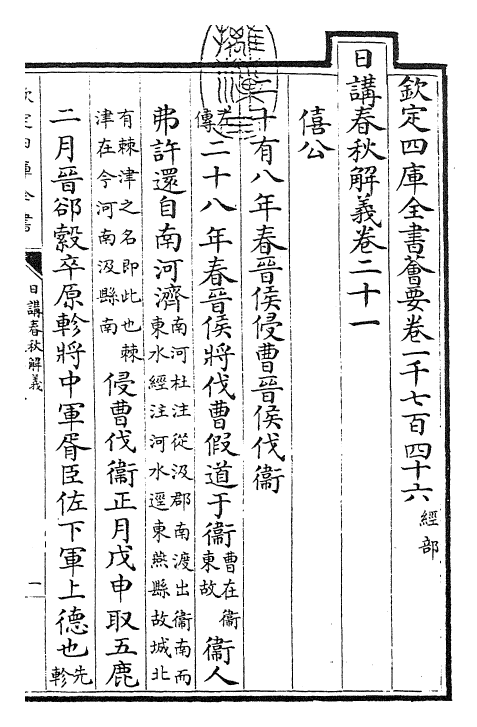 欽定四庫全書薈要卷一千七百四十六 經部
日講春秋解義卷二十一
僖公
二十有八年春晉侯侵曹晉侯伐衛
左傳二十八年春晉侯將伐曹假道于衛曹在衛東故衛人
弗許還自南河濟南河杜注從汲郡南渡出衛南而東水經注河水逕東燕縣故城北
有棘津之名即此也棘津在今河南汲縣南侵曹伐衛正月戊申取五鹿
二月晉郤縠卒原軫將中軍胥臣佐下軍上德也先軫
欽定四庫全書
日講春秋解義
一